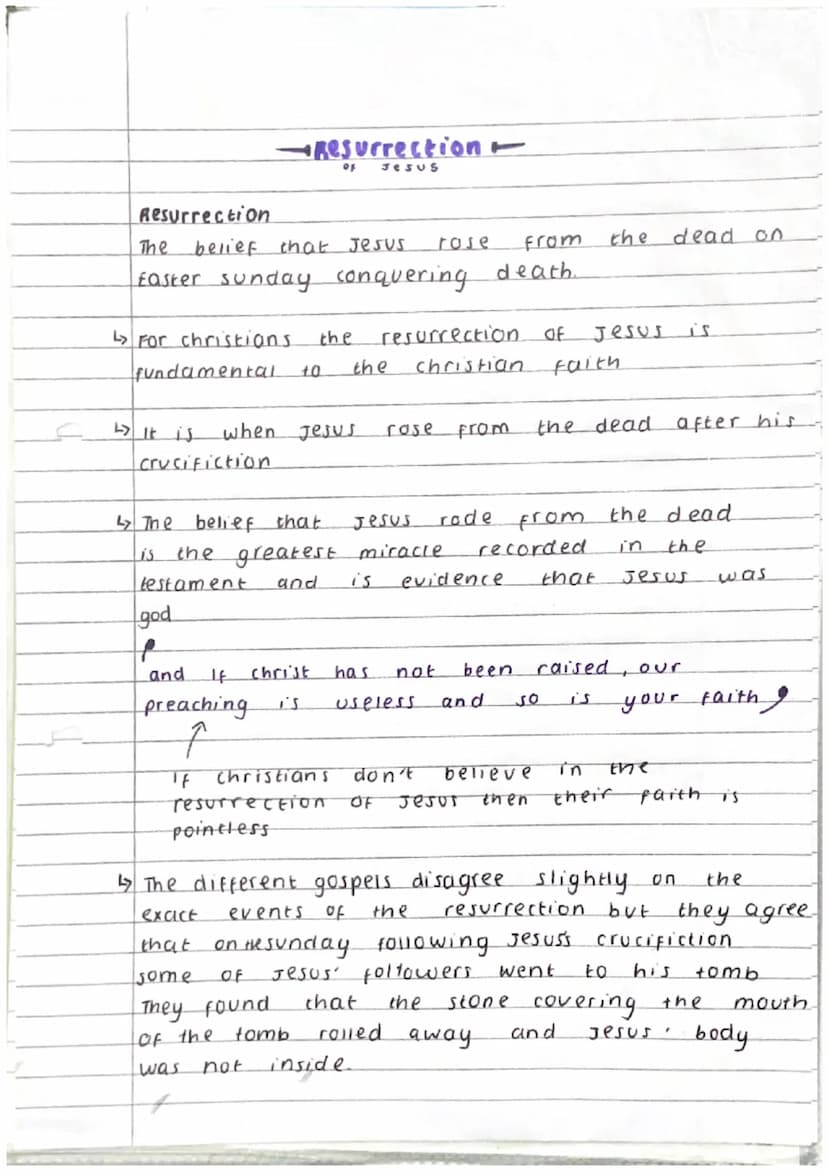 Resurrection
of Jesus
Resurrection
The belief that Jesus rose from the dead on
Easter sunday conquering death.
↳ For christians the resurrection of Jesus is
fundamental to the christian faith
↳ It is when Jesus rose from the dead after his
crucifiction
↳ The belief that Jesus rode from the dead
is the greatest miracle recorded in the
testament and is evidence that Jesus was
god
and if christ has not been raised, our
preaching is useless and so is your faith
If christians don't believe in the
resurrection of Jesus then their faith is
pointless
↳ The different gospels disagree slightly on the
exact events of the resurrection but they agree
that on the sunday following Jesus's crucifiction
some of Jesus' followers went to his tomb
They found that the stone covering the mouth
of the tomb rolled away and Jesus' body
was not inside.